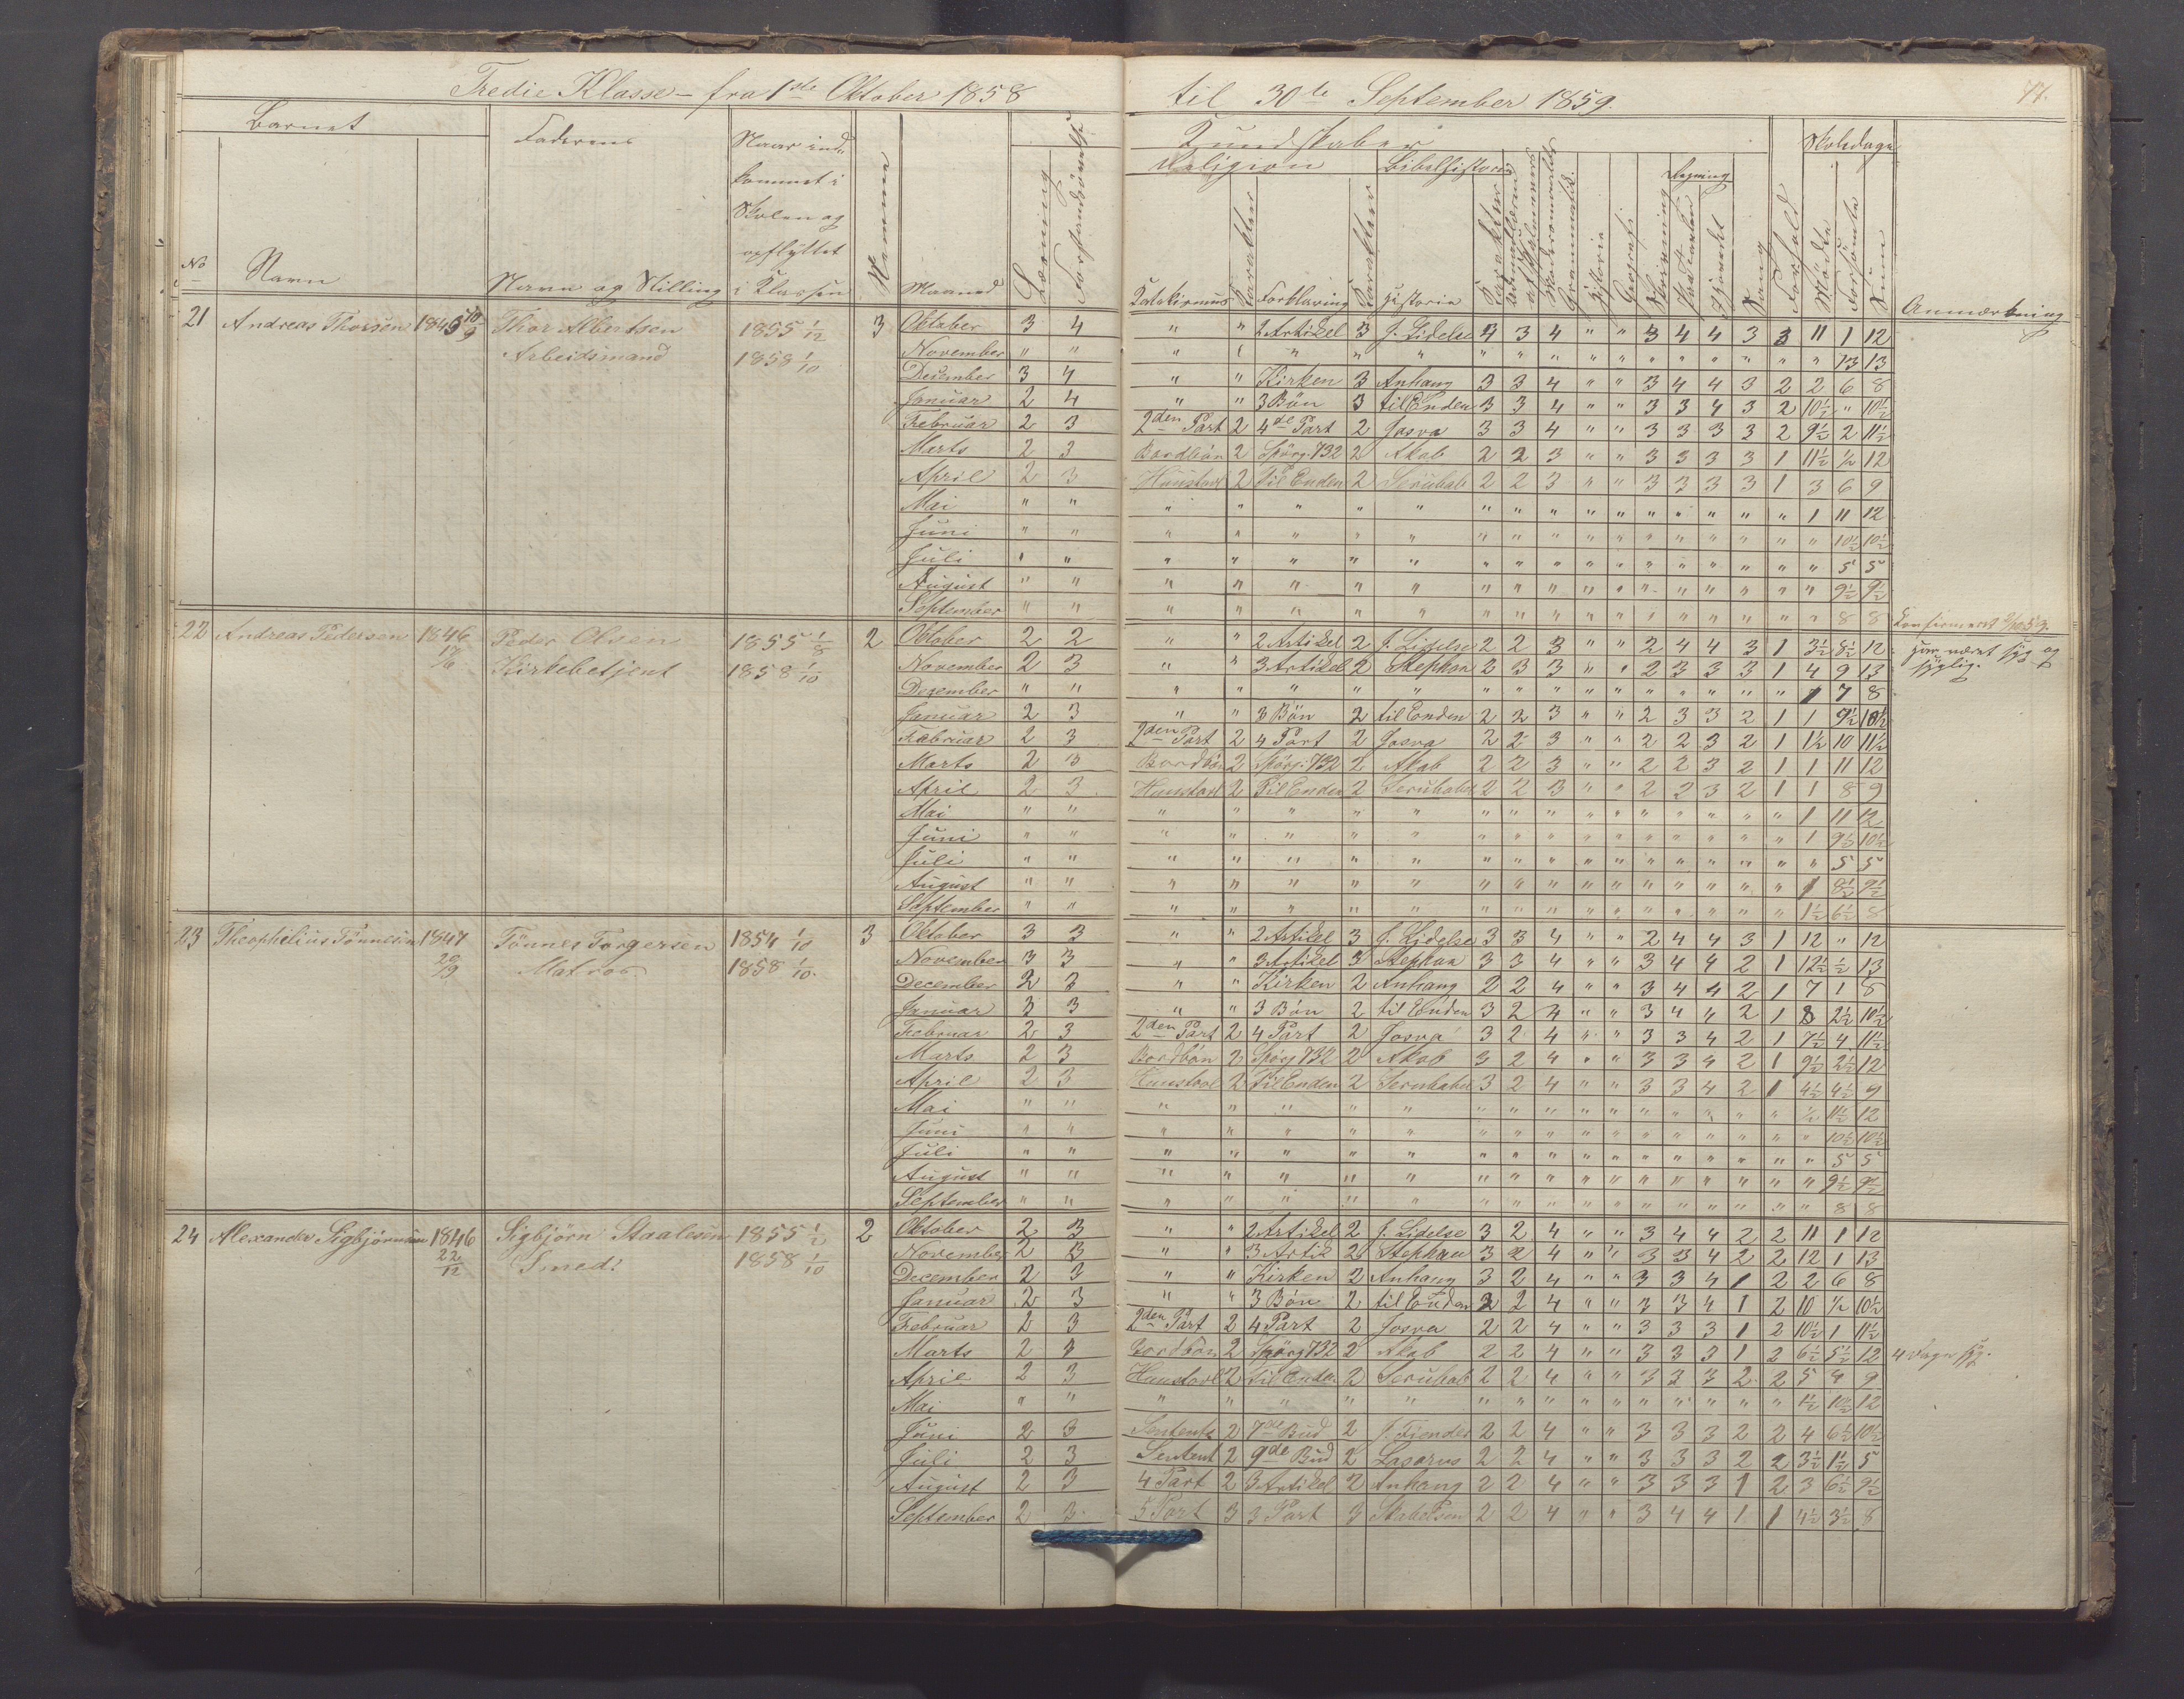 Tredie Klasse – fra 1ste Oktober 1858 til 30te September 1859.
77.
Barnet Faderens Naar ind- Kundskaber Skoledage
kommet i Religion Bibelhistorie Regning
Skolen og
opflyttet
No Navn Navn og Stilling i Klassen Nemme Maaned Læsning Forstandsøvelse Katekismus Karakter Forklaring Karakter Historie Karakter Grammatik Historie Geografi Skrivning Sang Forhold Mödte Forsömte Sum Anmærkning
21 Andreas Thorsen 1845 10/9 Thor Albertsen 1855 1/12 3 Oktober 3 4 " " 2 Artikel 3 J. Lidelse 4 3 4 " " 3 4 4 3 3 11 1 12
Arbeidsmand 1858 1/10 November " " " " " " " " " " " " " " " " " " " 13 13
December 3 4 " " Kirken 3 Anhang 3 3 4 " " 3 4 4 3 2 2 6 8
Januar 2 4 " " 3 Bön 3 til Enden 3 3 4 " " 3 3 4 3 2 10½ " 10½
Februar 2 3 2den Part 2 4de Part 2 Josva 3 3 4 " " 3 3 3 3 2 9½ 2 11½
Marts 2 3 Bordbön 2 Spörg. 732 2 Akab 2 2 3 " " 3 3 3 3 1 11½ ½ 12
April 2 3 Huustavl 2 Til Enden 2 Serubab 2 2 3 " " 3 3 3 3 1 3 6 9
Mai " " " " " " " " " " " " " " " " " 1 11 12
Juni " " " " " " " " " " " " " " " " " " 10½ 10½
Juli " " " " " " " " " " " " " " " " " " 5 5
August " " " " " " " " " " " " " " " " " " 9½ 9½
September " " " " " " " " " " " " " " " " " " 8 8
22 Andreas Pedersen 1846 Peder Olsen 1855 1/8 2 Oktober 2 2 " " 2 Artikel 2 J. Lidelse 2 2 3 " " 2 4 4 3 1 3½ 8½ 12 har været syg og
Kirkebetjent 1858 1/10 November 2 3 " " 3 Artikel 2 Stephan 2 3 3 " " 2 3 3 3 1 4 9 13 syglig.
December " " " " " " " " " " " " " " " " " 1 7 8
Januar 2 3 " " 3 Bön 2 til Enden 2 2 3 " " 2 3 3 2 1 1 9½ 10½
Februar 2 3 2den Part 2 4 Part 2 Josva 2 2 3 " " 2 2 3 2 1 1½ 10 11½
Marts 2 3 Bordbön 2 Spörg. 732 2 Akab 2 2 3 " " 2 2 3 2 1 1 11 12
April 2 3 Huustavl 2 Til Enden 2 Serubabel 2 2 3 " " 2 2 3 2 1 1 8 9
Mai " " " " " " " " " " " " " " " " " 1 11 12
Juni " " " " " " " " " " " " " " " " " 1 9½ 10½
Juli " " " " " " " " " " " " " " " " " " 5 5
August " " " " " " " " " " " " " " " " " 1 8½ 9½
September " " " " " " " " " " " " " " " " " 1½ 6½ 8
23 Theophilius Tönnesen 1847 Tönnes Torgersen 1854 1/10 3 Oktober 3 3 " " 2 Artikel 3 J. Lidelse 3 3 4 " " 2 4 4 3 1 12 " 12
20/9 Matros 1858 1/10. November 3 3 " " 3 Artikel 3 Stephan 3 3 4 " " 3 4 4 2 1 12½ ½ 13
December 2 3 " " Kirken 2 Anhang 2 2 4 " " 3 4 4 2 1 7 1 8
Januar 3 3 " " 3 Bön 2 til Enden 3 2 4 " " 3 4 4 2 1 8 2½ 10½
Februar 2 3 2den Part 2 4 Part 2 Josva 3 2 4 " " 3 3 4 2 1 7½ 4 11½
Marts 2 3 Bordbön 2 Spörg 732 2 Akab 3 2 4 " " 3 3 4 2 1 9½ 2½ 12
April 2 3 Huustavl 2 Til Enden 2 Serubabel 3 2 4 " " 3 3 4 2 1 4½ 4½ 9
Mai " " " " " " " " " " " " " " " " " ½ 11½ 12
Juni " " " " " " " " " " " " " " " " " " 10½ 10½
Juli " " " " " " " " " " " " " " " " " " 5 5
August " " " " " " " " " " " " " " " " " " 9½ 9½
September " " " " " " " " " " " " " " " " " " 8 8
24 Alexander Sigbjörnsen 1846 Sigbjörn Staalesen 1855 1/2 2 Oktober 2 3 " " 2 Artikel 2 J. Lidelse 3 2 4 " " 3 4 4 2 2 11 1 12
22/12 Smed: 1858 1/10 November 2 3 " " 3 Artik 2 Stephan 3 2 4 " " 3 3 4 2 2 12 1 13
December 2 3 " " Kirken 2 Anhang 3 2 4 " " 3 3 4 1 2 2 6 8
Januar 2 3 " " 3 Bön 2 til Enden 2 2 4 " " 3 3 4 1 2 10 ½ 10½
Februar 2 3 2den Part 2 4 Part 2 Josva 2 2 4 " " 3 3 3 1 2 10½ 1 11½
Marts 2 3 Bordbön 2 Spörg 732 2 Akab 2 2 4 " " 3 3 3 1 2 6½ 5½ 12 4 dage syg.
April 2 3 Huustavl 2 Til Enden 2 Serubab 2 2 4 " " 3 3 3 2 2 5 4 9
Mai " " " " " " " " " " " " " " " " " 1½ 10½ 12
Juni 2 3 Sentents 2 7de Bud 2 J. Fiender 2 2 4 " " 3 3 3 2 2 4 6½ 10½
Juli 2 3 Sentent 2 9de Bud 2 Lasarus 2 2 4 " " 3 3 3 2 2 3½ 1½ 5
August 2 3 4 Part 2 3 Artikel 2 Anhang 2 2 4 " " 3 3 3 1 2 3 6½ 9½
September 2 3 5 Part 3 3 Part 3 Skabelsen 2 2 4 " " 3 4 4 1 1 4½ 3½ 8